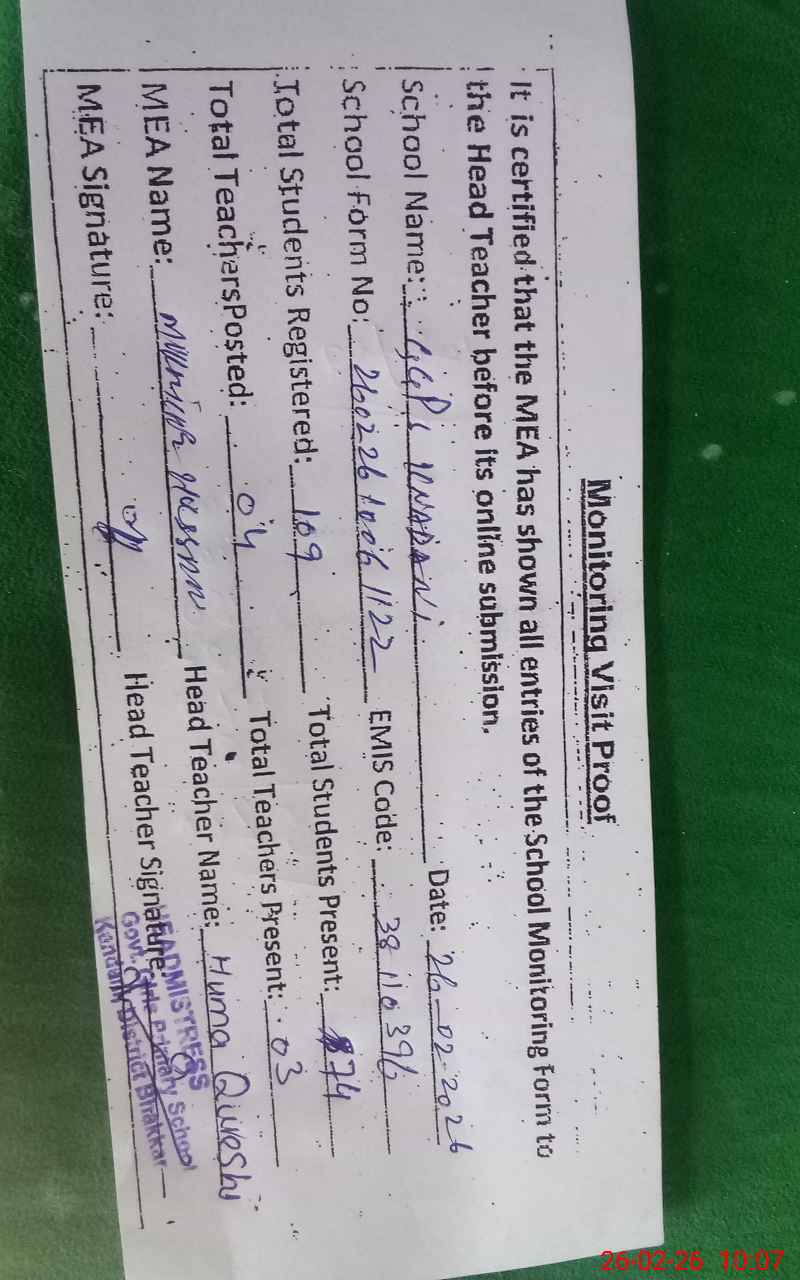 Monitoring Visit Proof
It is certified that the MEA has shown all entries of the School Monitoring Form to
the Head Teacher before its online submission.
School Name: GGPS Date: 26-02-2026
School Form No: 2602261006 1122 EMIS Code: 38110396
Total Students Registered: 109 Total Students Present: 74
Total Teachers Posted: 04 Total Teachers Present: 03
MEA Name: Hassan Head Teacher Name: Huma Qureshi
MEA Signature: Head Teacher Signature:
HEADMISTRESS
Govt. Girls Primary School
District Bhakkar
26-02-26 10:07